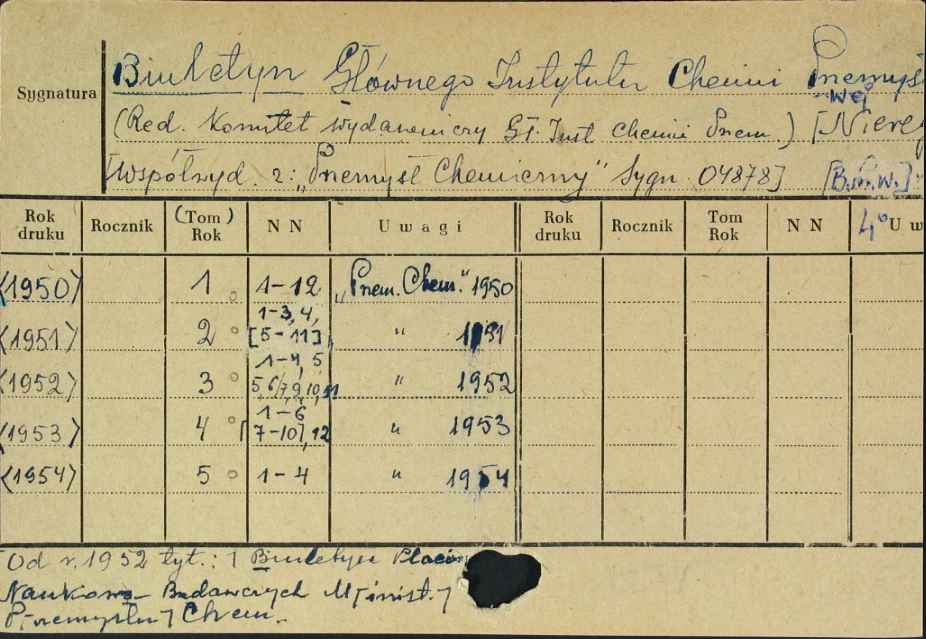 Sygnatura
Biuletyn Głównego Instytutu Chemii Przemysł
wej
(Red. Komitet Wydawniczy Gł. Inst Chemii Przem.) [Niere
[Współwyd. z: „Przemysł Chemiczny" Sygn. 04878] [B.m.w.]
Rok druku Rocznik (Tom) Rok N N Uwagi Rok druku Rocznik Tom Rok N N 4° Uw
<1950> 1 1-12 „Przem. Chem." 1950
<1951> 2 1-3, 4, [5-11] " 1951
<1952> 3 1-4, 5 5, 6/7, 9, 10, 11 " 1952
<1953> 4 1-6 [7-10], 12 " 1953
<1954> 5 1-4 " 1954
Od r. 1952 tyt.: Biuletyn Placów
Naukowo-Badawczych M[inist.]
P[rzemysłu] Chem.